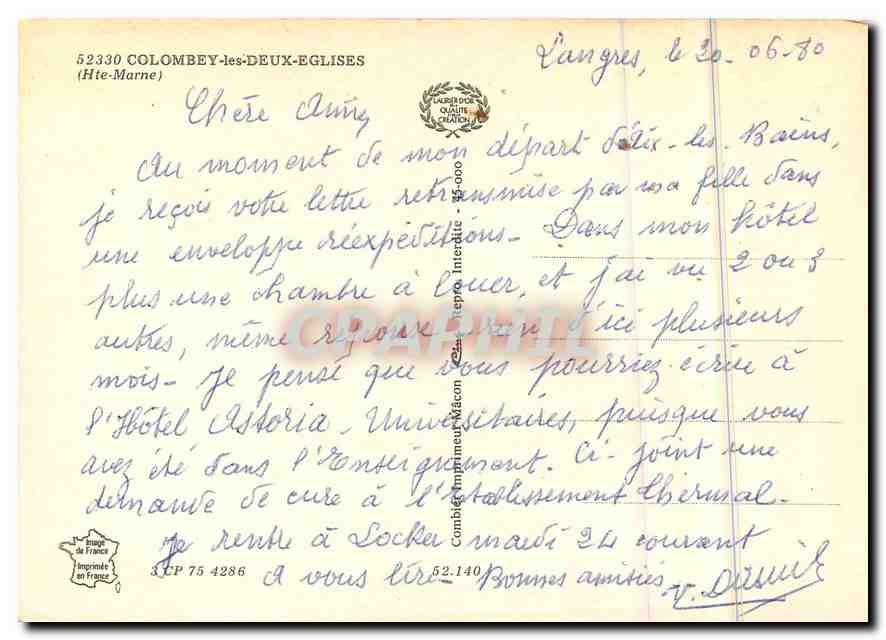 52330 COLOMBEY-les-DEUX-EGLISES
(Hte-Marne)
Langres, le 20-06-80
LAURIER D'OR
QUALITE
CREATION
Chère Amie
Au moment de mon départ d'Aix-les-Bains,
je reçois votre lettre retransmise par ma fille dans
une enveloppe réexpéditions- Dans mon hôtel
plus une chambre à louer, et j'ai vu 2 ou 3
autres, même réponse rien d'ici plusieurs
mois- Je pense que vous pourriez écrire à
l'Hôtel Astoria-Universitaires, puisque vous
avez été dans l'Enseignement. Ci-joint une
demande de cure à l'Etablissement Thermal-
Je rentre à Locker mardi 24 courant
A vous lire- Bonnes amitiés
Combier Imprimeur Mâcon Cim Repro. Interdite - 45-000
Image
de France
Imprimée
en France
3 CP 75 4286
52.140
CPAPHIL